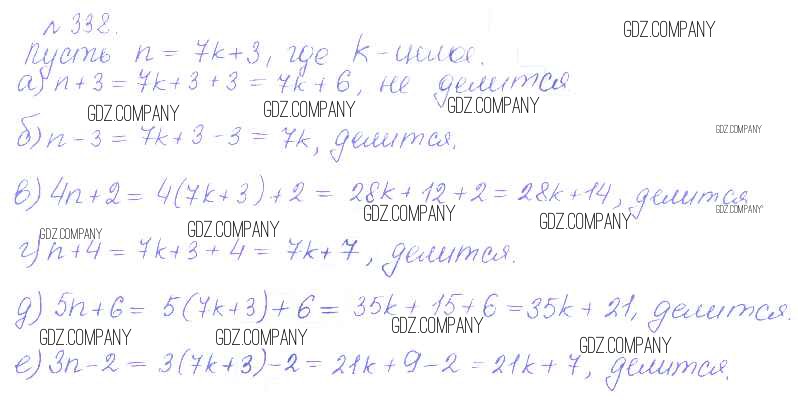 № 338.
GDZ.COMPANY
Пусть n = 7k+3, где k - целое.
а) n+3 = 7k+3+3 = 7k+6, не делится
GDZ.COMPANY GDZ.COMPANY GDZ.COMPANY
GDZ.COMPANY
б) n-3 = 7k+3-3 = 7k, делится.
в) 4n+2 = 4(7k+3)+2 = 28k+12+2 = 28k+14, делится
GDZ.COMPANY GDZ.COMPANY GDZ.COMPANY GDZ.COMPANY GDZ.COMPANY
г) n+4 = 7k+3+4 = 7k+7, делится.
д) 5n+6 = 5(7k+3)+6 = 35k+15+6 = 35k+21, делится.
GDZ.COMPANY GDZ.COMPANY GDZ.COMPANY GDZ.COMPANY
е) 3n-2 = 3(7k+3)-2 = 21k+9-2 = 21k+7, делится.